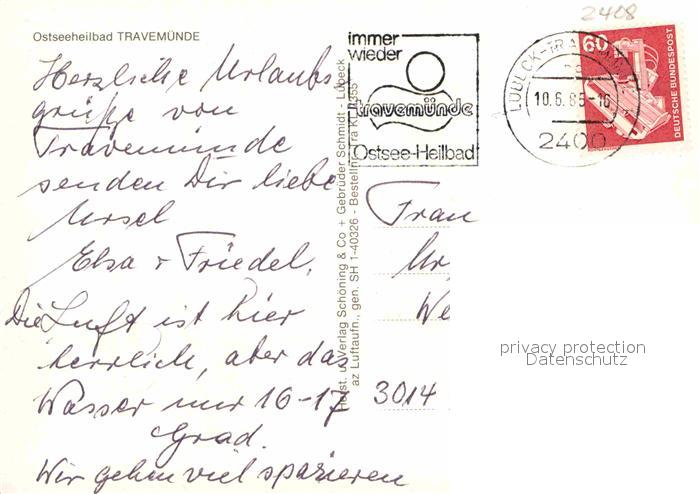 2408
Ostseeheilbad TRAVEMÜNDE
Herzliche Urlaubs
grüße von
Travemünde
senden Dir liebe
Ursel
Elsa + Friedel,
Die Luft ist hier
herrlich, aber das
Wasser nur 16-17
Grad.
Wir gehen viel spazieren
immer
wieder
travemünde
Ostsee-Heilbad
LÜBECK-TRAVEMÜNDE
10.6.85-16
2400
60
DEUTSCHE BUNDESPOST
Verlag Schöning & Co + Gebrüder Schmidt - Lübeck
az Luftaufn., gen. SH 1-40326 - Bestellnr.
Frau
Ur
We
3014
privacy protection
Datenschutz